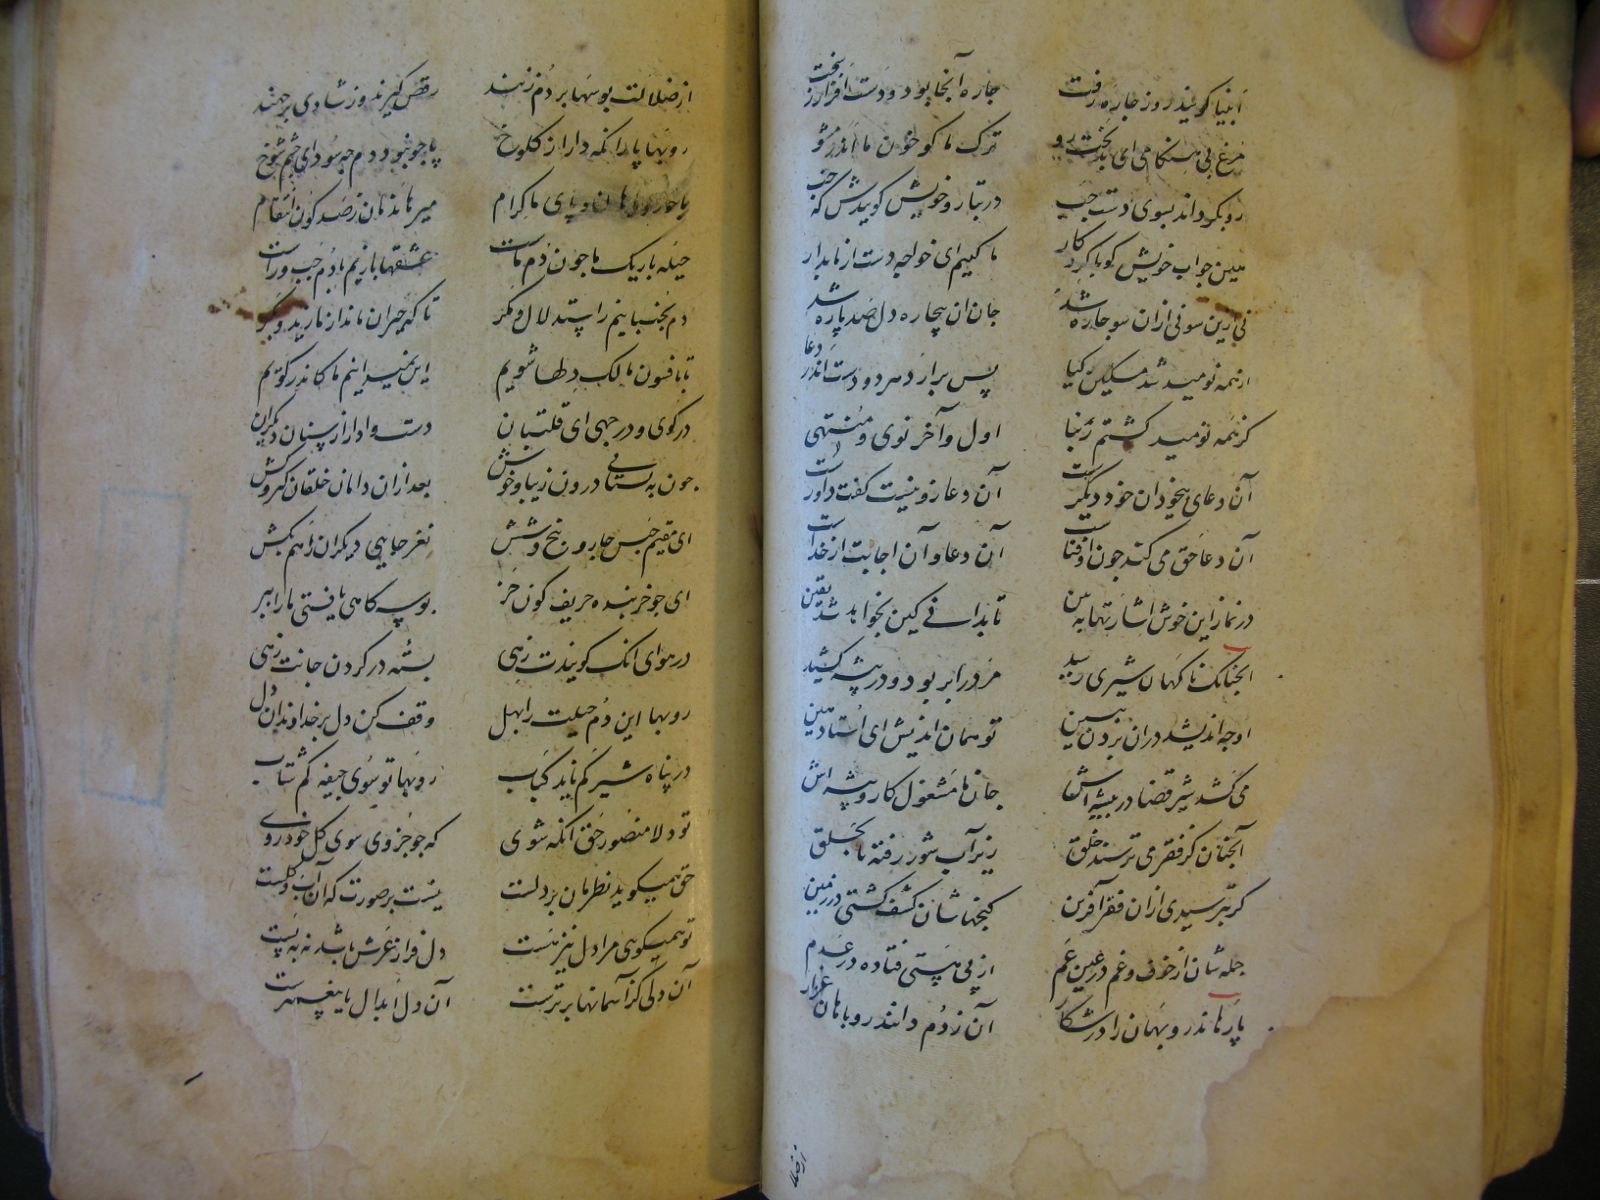 انبیا کویند روز جاره رفت جاره آنجا بود و دست افزار زفت
مرغ بی هنکامی ای بدبخت رو ترک ما کو خون ما اندر مشو
رو بکرداند بسوی دست جب در تبار و خویش کویندش که خب
هین جواب خویش کو با کردکار ما کییم ای خواجه دست از ما بدار
نی ازین سو نی ازان سو جاره شد جان ان بیجاره دل صد پاره شد
از همه نومید شد مسکین کیا پس برارد هر دو دست اندر دعا
کز همه نومید کشتم ای خدا اول و آخر توی و منتهی
آن دعای بیخودان خود دیکرست آن دعا زو نیست کفت داورست
آن دعا حق می کند جون او فناست آن دعا و آن اجابت از خداست
در نماز این خوش اشارتها ببین تا بدانی کین بخواهد شد یقین
انجنانک ناکهان شیری رسید مرد را بربود و در بیشه کشید
او جه اندیشد دران بردن ببین تو همان اندیش ای استاد دین
می کشد شیر قضا در بیشه اش جان ما مشغول کار و پیشه اش
آنجنان کز فقر می ترسند خلق زیر آب شور رفته تا بحلق
کر بترسیدی ازان فقر آفرین کنجهاشان کشف کشتی در زمین
جمله شان از خوف و غم در عین غم از پی هستی فتاده در عدم
پارها ندر وبهان را در شکار آن ز دم دانند روباهان غرار
از ضلالت
از ضلالت بوسها بر دم زنند رقص کیرند و ز شادی برجهند
روبها پا را نکه دار از کلوخ پا جو نبود دم جه سود ای جشم شوخ
ما جو روباهان و پای ما کرام میرهاندمان ز صد کون انتقام
حیله باریک ما جون دم ماست عشقها بازیم با دم جب و راست
دم بجنبانیم ز استدلال و مکر تا که حیران ماند از ما زید و بکر
تا بافسون مالک دلها شویم این نمی بینیم ما کاندر کویم
در کوی و در جهی ای قلتبان دست وادار از سبال دیکران
جون به بستانی درون زیبا و خوش بعد ازان دامان خلقان کیر و کش
ای مقیم حبس جار و پنج و شش نغز جایی دیکران را هم بکش
ای جو خربنده حریف کون خر بوسه کاهی یافتی ما را ببر
در هوای انک کویندت زهی بسته در کردن جانت زهی
روبها این دم حیلت را بهل وقف کن دل بر خداوندان دل
در پناه شیر کم ناید کباب روبها تو سوی جیفه کم شتاب
تو دلا منصور حق انکه شوی که جو جزوی سوی کل خود روی
حق همیکوید نظرمان بر دلست نیست بر صورت که آن آب و کلست
تو همیکویی مرا دل نیز هست دل فراز عرش باشد نه به پست
آن دلی کز آسمانها برترست آن دل ابدال یا پیغمبرست